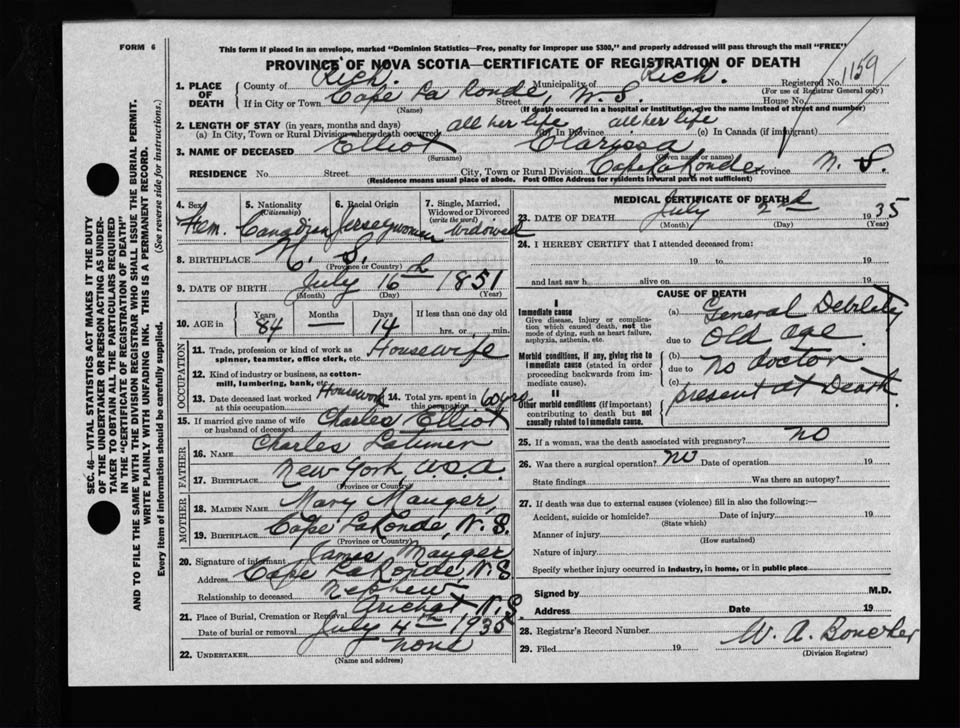 FORM 6
This form if placed in an envelope, marked "Dominion Statistics—Free, penalty for improper use $300," and properly addressed will pass through the mail "FREE"
PROVINCE OF NOVA SCOTIA—CERTIFICATE OF REGISTRATION OF DEATH
1. PLACE OF DEATH
County of Rich. Municipality of Rich. Registered No. 1159
(For use of Registrar General only)
If in City or Town Cape La Ronde, N.S. Street House No.
(Name) (If death occurred in a hospital or institution, give the name instead of street and number)
2. LENGTH OF STAY (in years, months and days)
(a) In City, Town or Rural Division where death occurred all her life (b) In Province all her life (c) In Canada (if immigrant)
3. NAME OF DECEASED Elliot Clarissa
(Surname) (Given name or names)
RESIDENCE No. Street City, Town or Rural Division Cape La Ronde Province N. S.
(Residence means usual place of abode. Post Office Address for residents in rural parts not sufficient)
4. Sex Fem.
5. Nationality (Citizenship) Canadian
6. Racial Origin Jerseywoman
7. Single, Married, Widowed or Divorced (write the word) Widowed
8. BIRTHPLACE N. S.
(Province or Country)
9. DATE OF BIRTH July 16th 1851
(Month) (Day) (Year)
10. AGE in Years 84 Months — Days 14 If less than one day old hrs. or min.
OCCUPATION
11. Trade, profession or kind of work as spinner, teamster, office clerk, etc. Housewife
12. Kind of industry or business, as cotton-mill, lumbering, bank, etc.
13. Date deceased last worked at this occupation Housework 14. Total yrs. spent in this occupation 60 yrs.
15. If married give name of wife or husband of deceased Charles Elliot
FATHER
16. NAME Charles Latimer
17. BIRTHPLACE New York, U.S.A.
(Province or Country)
MOTHER
18. MAIDEN NAME Mary Mauger,
19. BIRTHPLACE Cape LaRonde, N.S.
(Province or Country)
20. Signature of informant James Mauger
Address Cape La Ronde, N.S.
Relationship to deceased Nephew
21. Place of Burial, Cremation or Removal Arichat N.S.
Date of burial or removal July 4th 1935
22. UNDERTAKER none
(Name and address)
MEDICAL CERTIFICATE OF DEATH
23. DATE OF DEATH July 2nd 1935
(Month) (Day) (Year)
24. I HEREBY CERTIFY that I attended deceased from:
19 to 19
and last saw h alive on 19
CAUSE OF DEATH
I
Immediate cause
Give disease, injury or complication which caused death, not the mode of dying, such as heart failure, asphyxia, asthenia, etc.
(a) General Debility
due to Old age
Morbid conditions, if any, giving rise to immediate cause (stated in order proceeding backwards from immediate cause).
(b) No doctor
due to
(c) present at Death.
II
Other morbid conditions (if important) contributing to death but not causally related to immediate cause.
25. If a woman, was the death associated with pregnancy? no
26. Was there a surgical operation? no Date of operation 19
State findings Was there an autopsy?
27. If death was due to external causes (violence) fill in also the following:—
Accident, suicide or homicide? Date of injury 19
(State which)
Manner of injury
(How sustained)
Nature of injury
Specify whether injury occurred in industry, in home, or in public place
Signed by M.D.
Address Date 19
28. Registrar's Record Number
29. Filed 19 W. A. Boucher
(Division Registrar)
SEC. 46—VITAL STATISTICS ACT MAKES IT THE DUTY
OF THE UNDERTAKER OR PERSON ACTING AS UNDERTAKER TO OBTAIN ALL THE PARTICULARS REQUIRED
IN THE "CERTIFICATE OF REGISTRATION OF DEATH"
AND TO FILE THE SAME WITH THE DIVISION REGISTRAR WHO SHALL ISSUE THE BURIAL PERMIT.
WRITE PLAINLY WITH UNFADING INK. THIS IS A PERMANENT RECORD.
Every item of information should be carefully supplied. (See reverse side for instructions.)